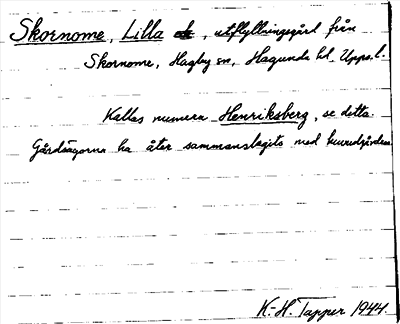 Skornome, Lilla, utflyttningsgård från
Skornome, Hagby sn, Hagunda hd Upps. l.
Kallas numera Henriksberg, se detta.
Gårdsägorna ha åter sammanslagits med huvudgården
K.-H. Tapper 1944.